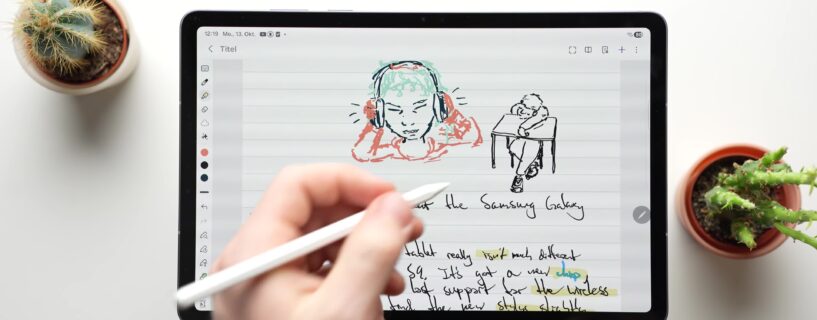 12:19 Mo., 13. Okt.
Titel
the Samsung Galaxy
tablet really isn't much different
S9. It's got a new chip,
lost support for the wireless
and the new stylus slightly